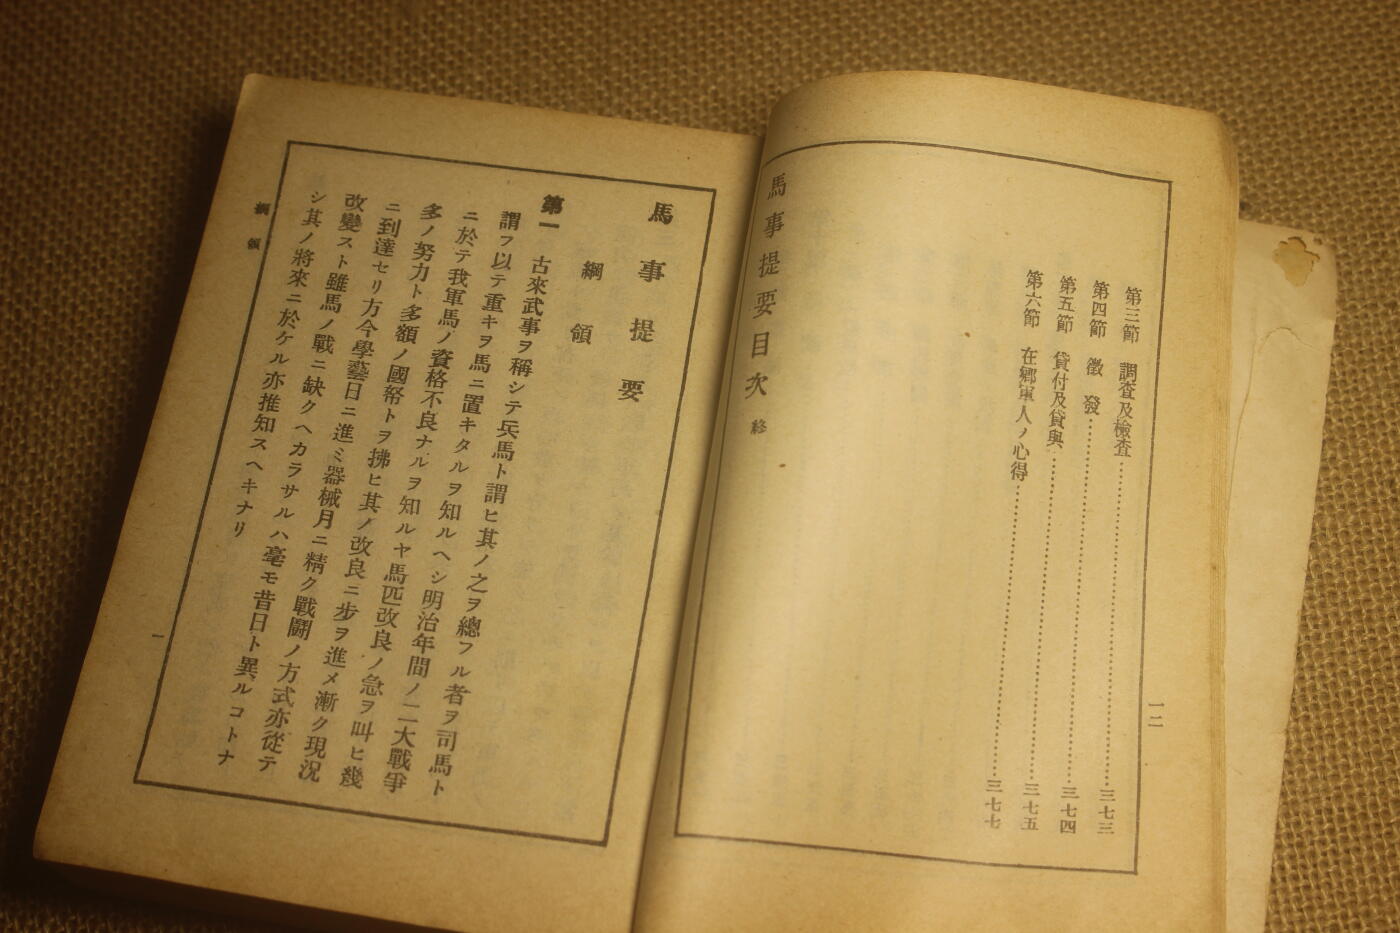 第三節 調査及檢査………三七三
第四節 徵發………三七四
第五節 貸付及貸與………三七五
第六節 在鄕軍人ノ心得………三七七
馬事提要目次 終
一二
馬事提要
綱領
第一 古來武事ヲ稱シテ兵馬ト謂ヒ其ノ之ヲ總フル者ヲ司馬ト
謂フ以テ重キヲ馬ニ置キタルヲ知ルヘシ明治年間ノ二大戰爭
ニ於テ我軍馬ノ資格不良ナルヲ知ルヤ馬匹改良ノ急ヲ叫ヒ幾
多ノ努力ト多額ノ國帑トヲ拂ヒ其ノ改良ニ步ヲ進メ漸ク現況
ニ到達セリ方今學藝日ニ進ミ器械月ニ精ク戰鬪ノ方式亦從テ
改變スト雖馬ノ戰ニ缺クヘカラサルハ毫モ昔日ト異ルコトナ
シ其ノ將來ニ於ケル亦推知スヘキナリ
綱領
一